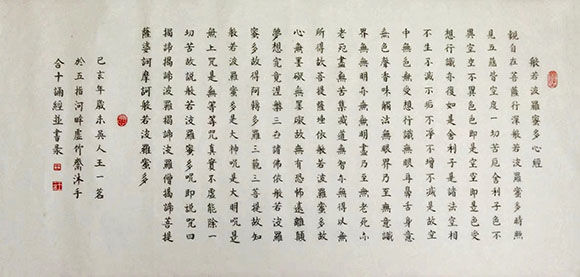 般若波羅蜜多心經
觀自在菩薩行深般若波羅蜜多時照
見五蘊皆空度一切苦厄舍利子色不
異空空不異色色即是空空即是色受
想行識亦復如是舍利子是諸法空相
不生不滅不垢不淨不增不減是故空
中無色無受想行識無眼耳鼻舌身意
無色聲香味觸法無眼界乃至無意識
界無無明亦無無明盡乃至無老死亦
老死盡無苦集滅道無智亦無得以無
所得故菩提薩埵依般若波羅蜜多故
心無罣礙無罣礙故無有恐怖遠離顛
夢想究竟涅槃三世諸佛依般若波羅
蜜多故得阿耨多羅三藐三菩提故知
般若波羅蜜多是大神咒是大明咒是
無上咒是無等等咒真實不虛能除一
切苦故說般若波羅蜜多咒即說咒曰
揭諦揭諦波羅揭諦波羅僧揭諦菩提
薩婆訶摩訶般若波羅蜜多
己亥年歲末吳人王一茗
於五指河畔虛竹齋沐手
合十誦經並書